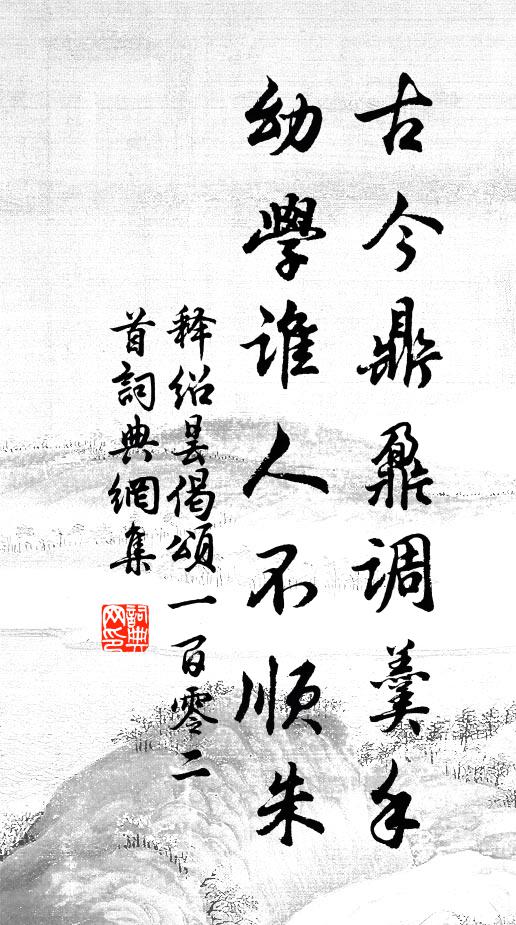 古今鼎鼐調羹手
幼學誰人不順朱
釋紹曇偈頌一百零二
首詞典網集
詞典网印